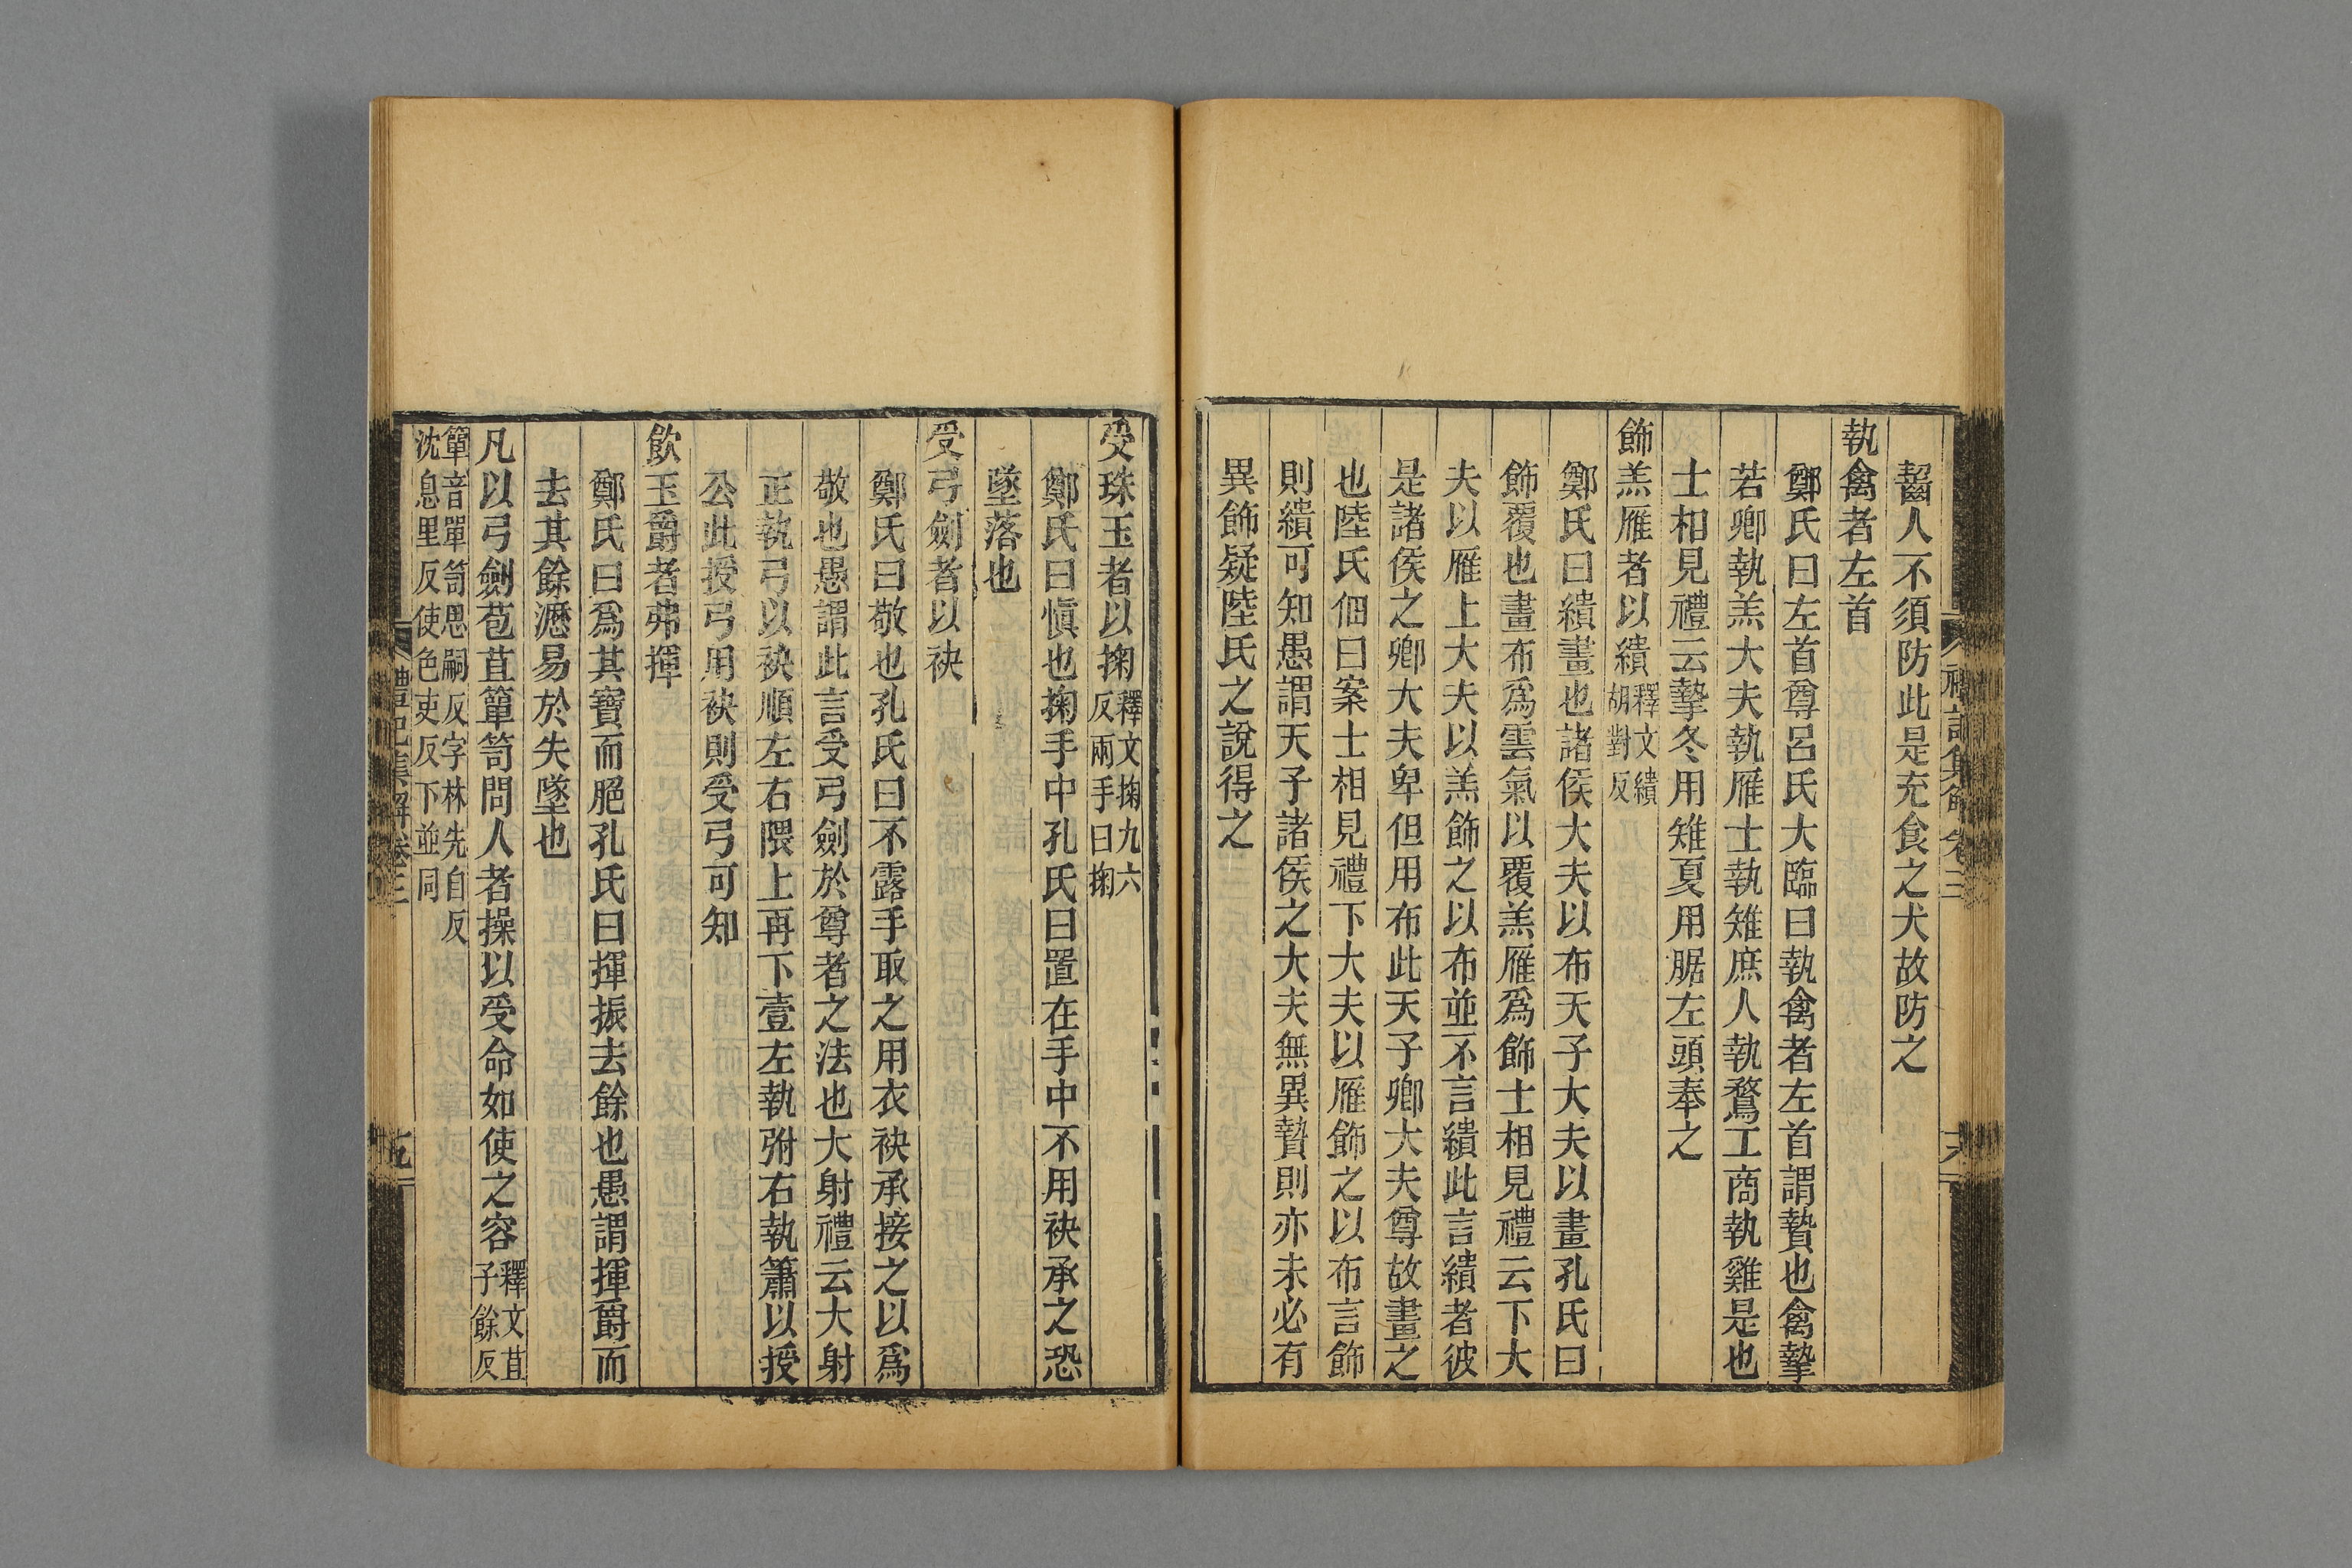 齧人不須防此是充食之犬故防之
執禽者左首
鄭氏曰左首尊呂氏大臨曰執禽者左首謂贄也禽摯
若卿執羔大夫執雁士執雉庶人執鶩工商執雞是也
士相見禮云摯冬用雉夏用腒左頭奉之
飾羔雁者以繢釋文繢胡對反
鄭氏曰繢畫也諸侯大夫以布天子大夫以畫孔氏曰
飾覆也畫布爲雲氣以覆羔雁爲飾士相見禮云下大
夫以雁上大夫以羔飾之以布並不言繢此言繢者彼
是諸侯之卿大夫卑但用布此天子卿大夫尊故畫之
也陸氏佃曰案士相見禮下大夫以雁飾之以布言飾
則繢可知愚謂天子諸侯之大夫無異贄則亦未必有
異飾疑陸氏之說得之
禮記集解卷三
受珠玉者以掬釋文掬九六反兩手曰掬
鄭氏曰愼也掬手中孔氏曰置在手中不用袂承之恐
墜落也
受弓劍者以袂
鄭氏曰敬也孔氏曰不露手取之用衣袂承接之以爲
敬也愚謂此言受弓劍於尊者之法也大射禮云大射
正執弓以袂順左右隈上再下壹左執弣右執簫以授
公此授弓用袂則受弓可知
飲玉爵者弗揮
鄭氏曰爲其寶而脃孔氏曰揮振去餘也愚謂揮爵而
去其餘瀝易於失墜也
凡以弓劍苞苴簞笥問人者操以受命如使之容釋文苴子餘反
簞音單笥思嗣反字林先自反
沈息里反使色吏反下並同
禮記集解卷三